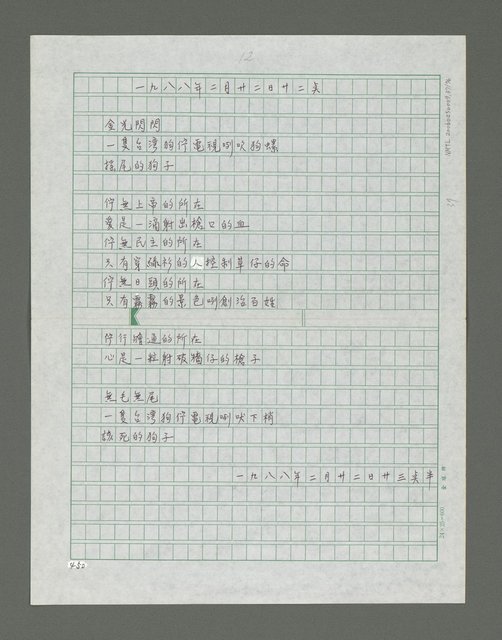 12
一九八八年二月廿二日廿二点
金光閃閃
一隻台灣狗佇電視唎吠狗螺
搖尾的狗子
佇無上帝的所在
愛是一滴射出槍口的血
佇無民主的所在
只有穿綠衫的人控制草仔的命
佇無日頭的所在
只有霧霧的景色唎創治百姓
佇行 的所在
心是一粒射破牆仔的槍子
無毛無尾
一隻台灣狗佇電視唎吠下梢
該死的狗子
一九八八年二月廿二日廿三点半
24×25=600
450